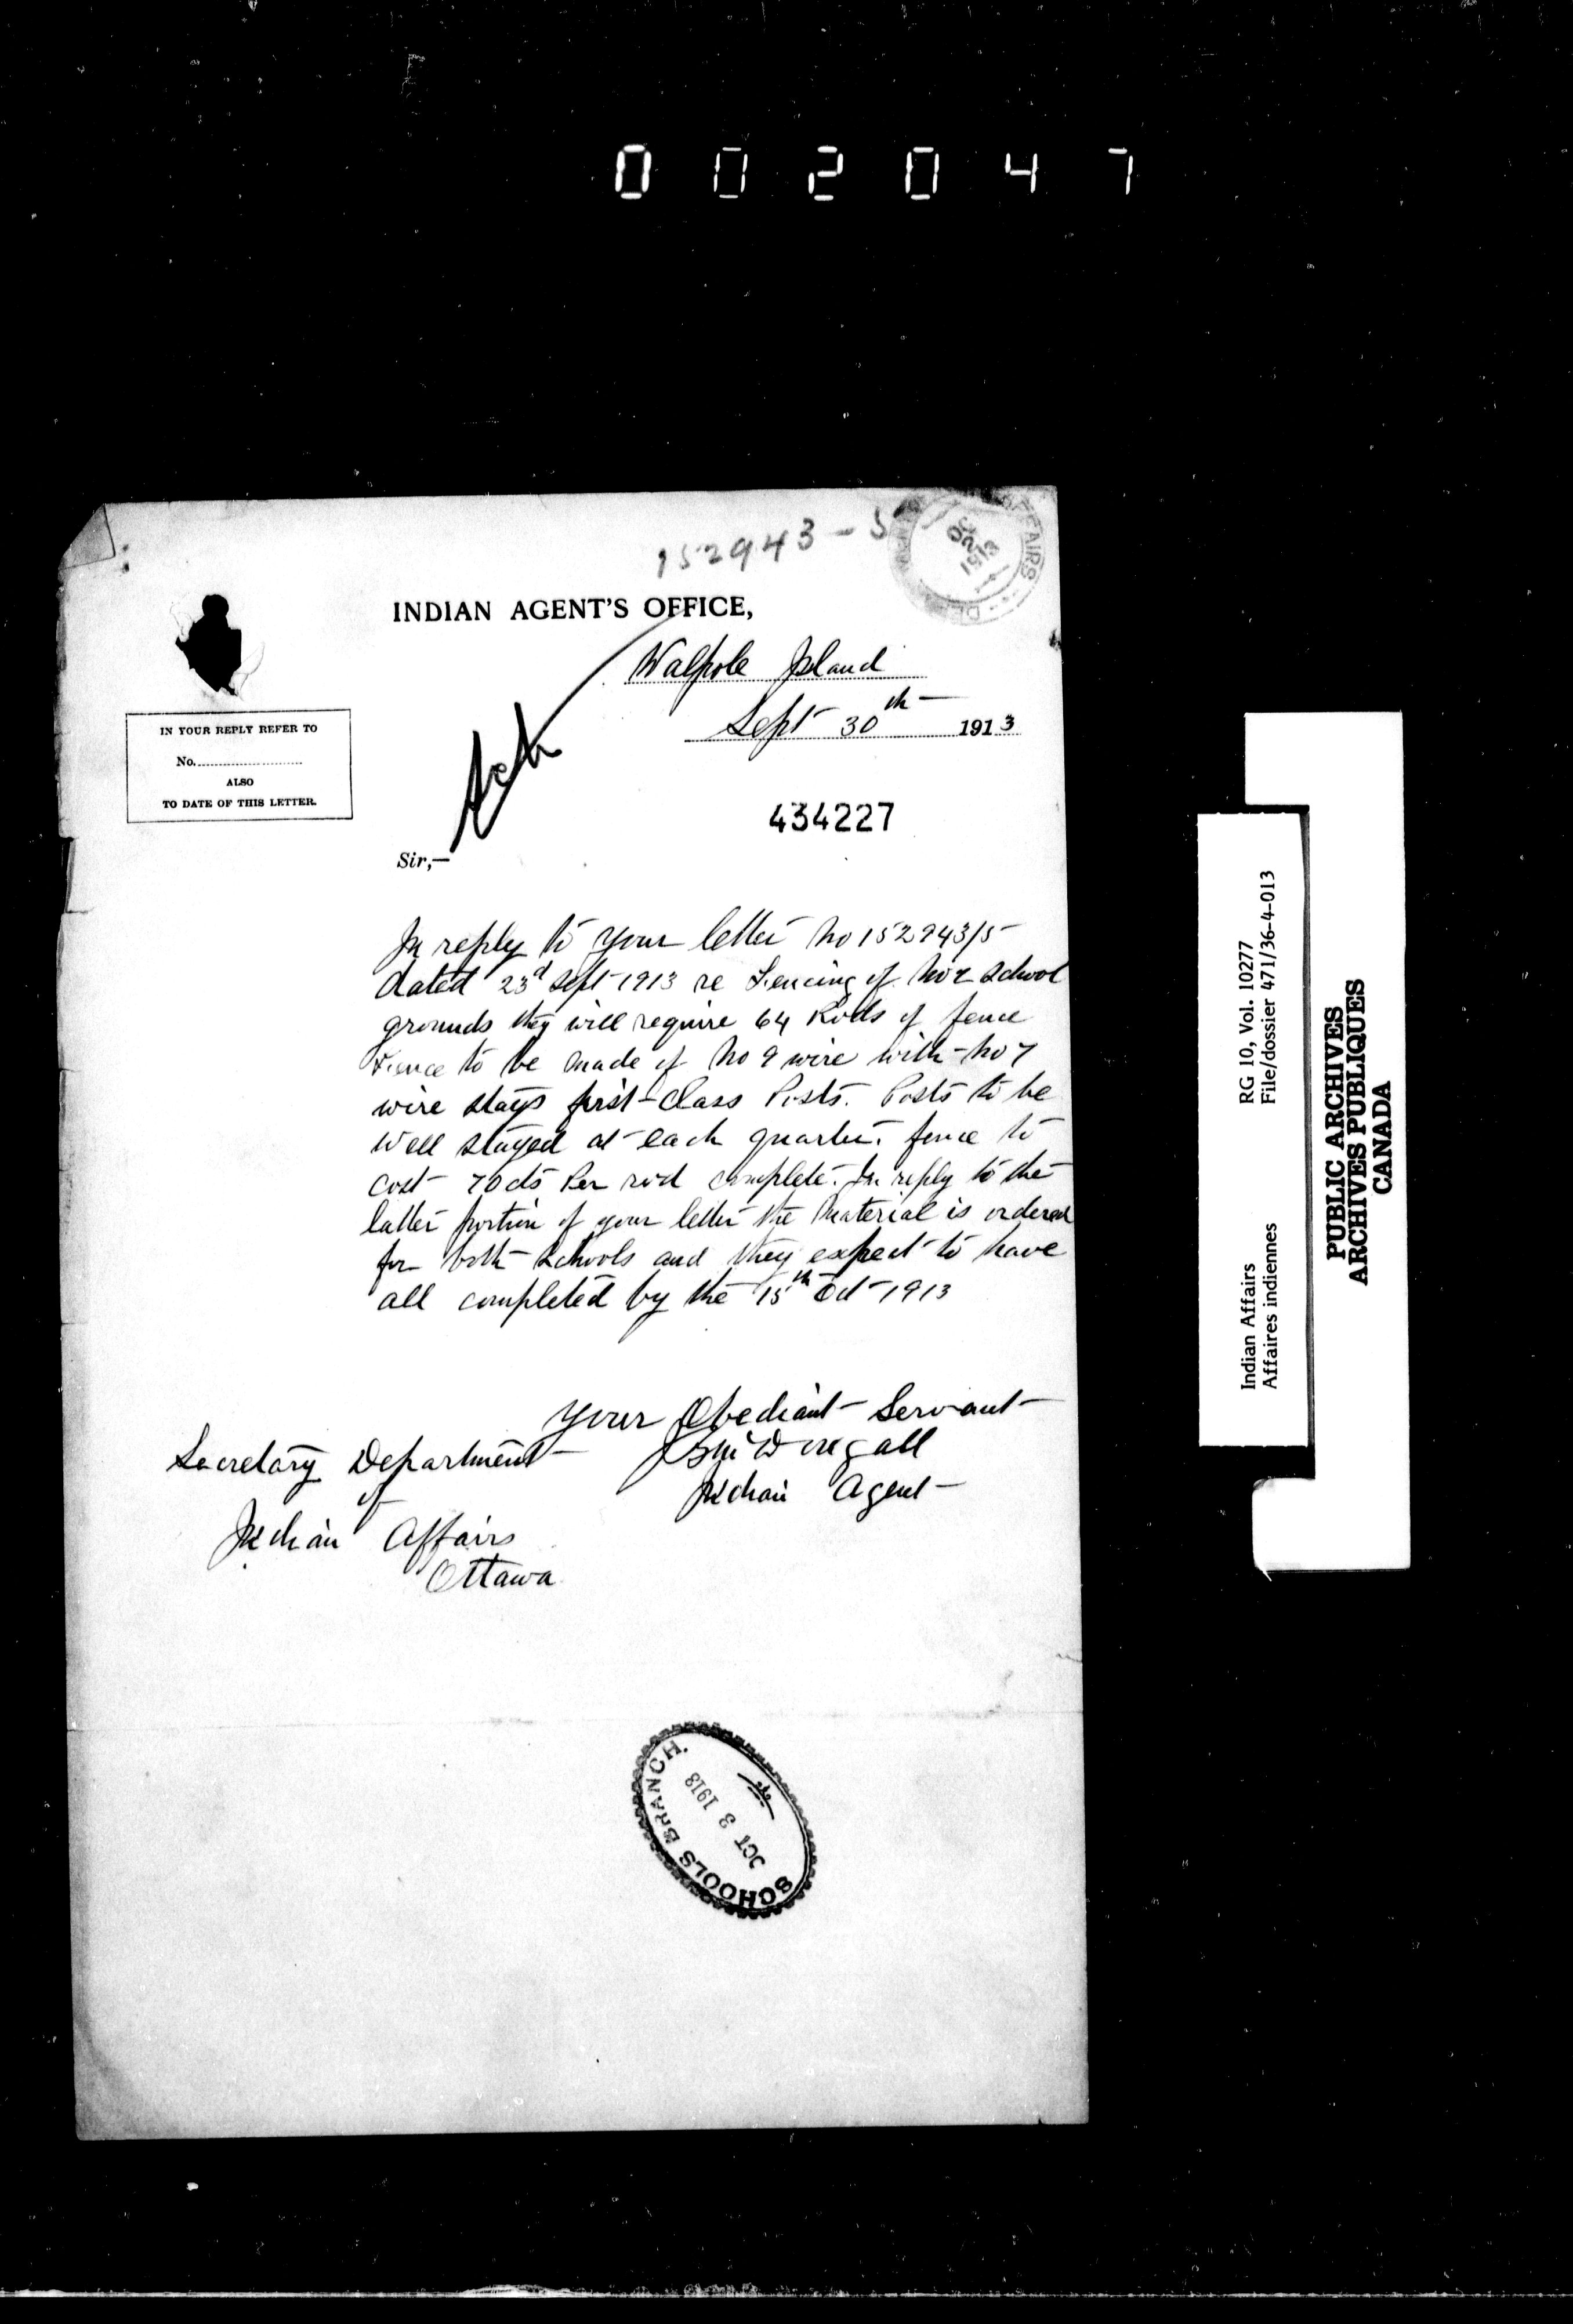 002047
152943-5
AFFAIRS
OC
2
1913
INDIAN AGENT'S OFFICE,
Walpole Island
Sept 30th 1913
IN YOUR REPLY REFER TO
No.
ALSO
TO DATE OF THIS LETTER.
434227
Sir,—
In reply to your letter No 152943/5
dated 23d Sept 1913 re Fencing of No 2 School
grounds they will require 64 Rods of fence
Fence to be made of No 9 wire with No 7
wire stays first-Class Posts. Posts to be
well stayed at each quarter. fence to
cost 70 cts Per rod complete. In reply to the
latter portion of your letter the Material is ordered
for both Schools and they expect to have
all completed by the 15th Oct 1913
Your Obediant Servant
Indian Agent
Secretary Department
of
Indian Affairs
Ottawa
SCHOOLS BRANCH.
OCT 3 1913
Indian Affairs RG 10, Vol. 10277
Affaires indiennes File/dossier 471/36-4-013
PUBLIC ARCHIVES
ARCHIVES PUBLIQUES
CANADA